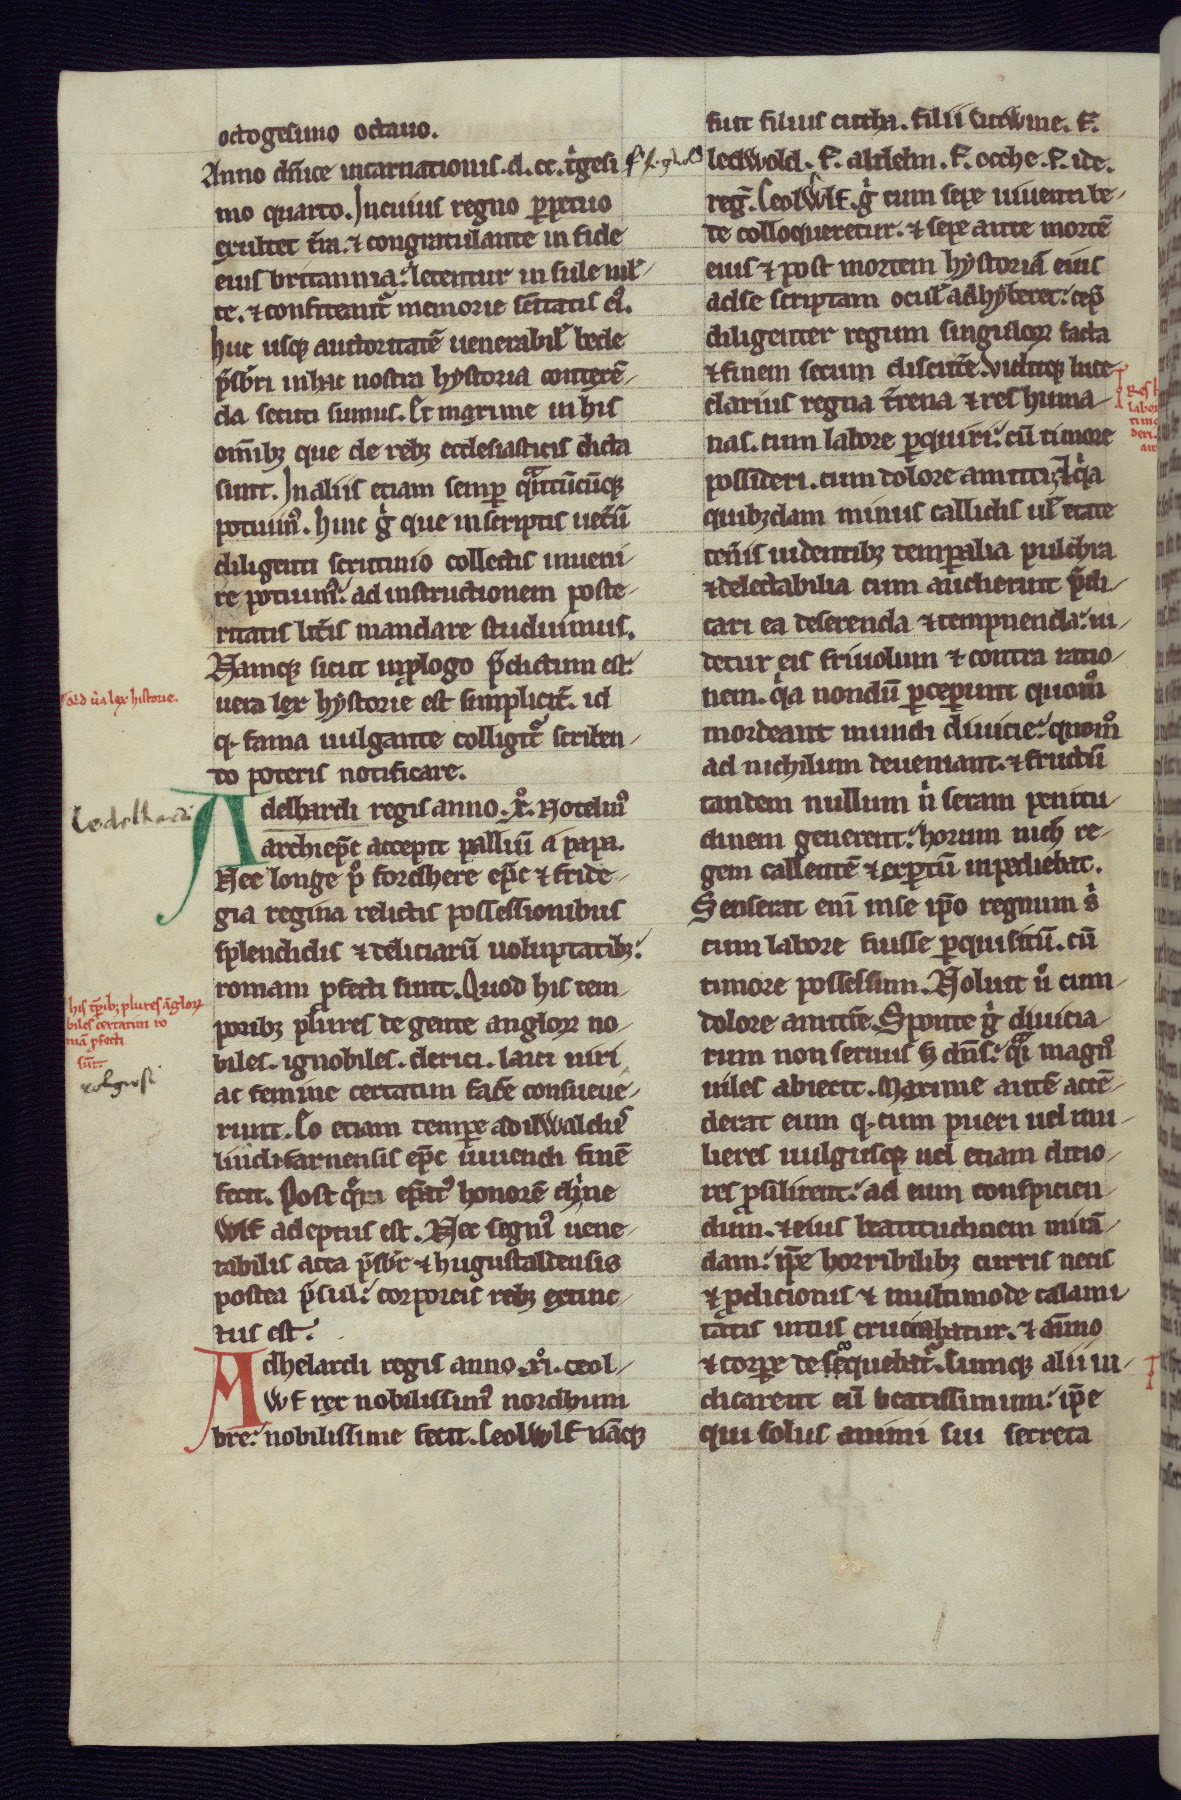 octogesimo octauo.
Anno dn̄ice incarnationis .d.cc. t'gesi
mo quarto. In cuius regno ꝑpetuo
exultet t̄ra. ⁊ congratulante in fide
eius britannia: letentur in sule mlͭ
te. ⁊ confiteant᷑ memorie sc̄itatis eiꝰ.
huc usqꝫ auctoritatē uenerabil' bede
p̄sb'ri in hac nostra hystoria conterē-
da secuti sumus. Et maxime in his
om̄ibꝫ que de rebꝫ ecclesiasticis dicta
sunt. In aliis etiam semꝑ qͣntūcūqꝫ
potuimꝰ. hinc g' que in scriptis uet'ū
diligenti scrutinio collectis inueni-
re potuimꝰ: ad instructionem poste-
ritatis lit'is mandare studuimus.
Namqꝫ sicut in ꝓlogo p̄dictum est:
uera lex hystorie est simplicit'. id
q. fama uulgante colligit᷑ scriben-
do poteris notificare.
Adelhardi regis anno .xͦ. Notelmꝰ
archiep̄c accepit palliū a papa.
Nec longe pꝰ fordhere ep̄c ⁊ fride-
gia regina relictis possessionibus
splendidis ⁊ deliciarū uoluptatibꝫ:
romam ꝓfecti sunt. Quod his tem-
poribꝫ plures de gente anglorꝝ no-
biles. ignobiles. clerici. laici uiri
ac femine certatim fac̄e consueue-
runt. Eo etiam tempe adilwaldꝰ
lindifarnensis ep̄c uiuendi finē
fecit. Post q̄m ep̄at' honorē chine
wlf adeptus est. Nec segnꝰ uene-
rabilis acca p̄sb'r ⁊ hugustaldensis
postea p̄sul: corporeis rebꝫ extinc-
tus est.
Adhelardi regis anno .xiͦ. ceol-
wlf rex nobilissimꝰ nordhum
bre: nobilissime fecit. Ceolwlf nāqꝫ
fuit filius cutha. filii cutwine. f.
f. leodwold
ledwold. f. aldelm. f. ocche. f. ide.
reg̅. Ceolwlf. g' cum sepe uiuenti be-
de colloqueretur. ⁊ sepe ante mortē
eius ⁊ post mortem hystoriā eius
ad se scriptam ocul' adhyberet: cep̄
diligenter regum singulorꝝ facta
⁊ finem secum discut'e. viditqꝫ luce
clarius regna t'rena ⁊ res huma-
nas. cum labore ꝑquiri: cū timore
possideri. cum dolore amitti. Et q'a
quibꝫdam minus callidis ul' etate
ten'is uidentibꝫ temporalia pulchra
⁊ delectabilia cum audierint p̄di-
cari ea deserenda ⁊ tempnenda: ui-
detur eis friuolum ⁊ contra ratio-
nem. q'a nondū ꝑceperunt quomꝰ
mordeant mundi diuicie: quomꝰ
ad nichilum deueniant. ⁊ fructū
tandem nullum n' seram penitu-
dinem generent: horum nich' re-
gem callentē ⁊ exꝑtū inpediebat.
Senserat enī in se ip̄o regnum s'
cum labore fuisse ꝑquisitū. cū
timore possessum. Noluit u' cum
dolore amitt'e. Sponte g' diuicia-
rum non seruus sꝫ dn̄s: qͣi magnꝰ
uiles abiecit. Maxime aut' accē-
derat eum q. cum pueri uel mu-
lieres uulgusqꝫ uel etiam ditio-
res ꝓsilirent: ad eum conspicien-
dum. ⁊ eius beatitudinem mirā-
dam: ip̄e horribilibꝫ curris necis
⁊ ꝓdicionis ⁊ multimode calami-
tatis intus cruciabatur. ⁊ an̄mo
⁊ corꝑe defequebat᷑. Cumqꝫ alii iu-
dicarent eū beatissimum: ip̄e
qui solus animi sui secreta
uera lex historie.
Eedelhardi
his tp̄ibꝫ plures anglorꝝ
biles certatim ro
mā ꝓfecti
sūt.
religiosi